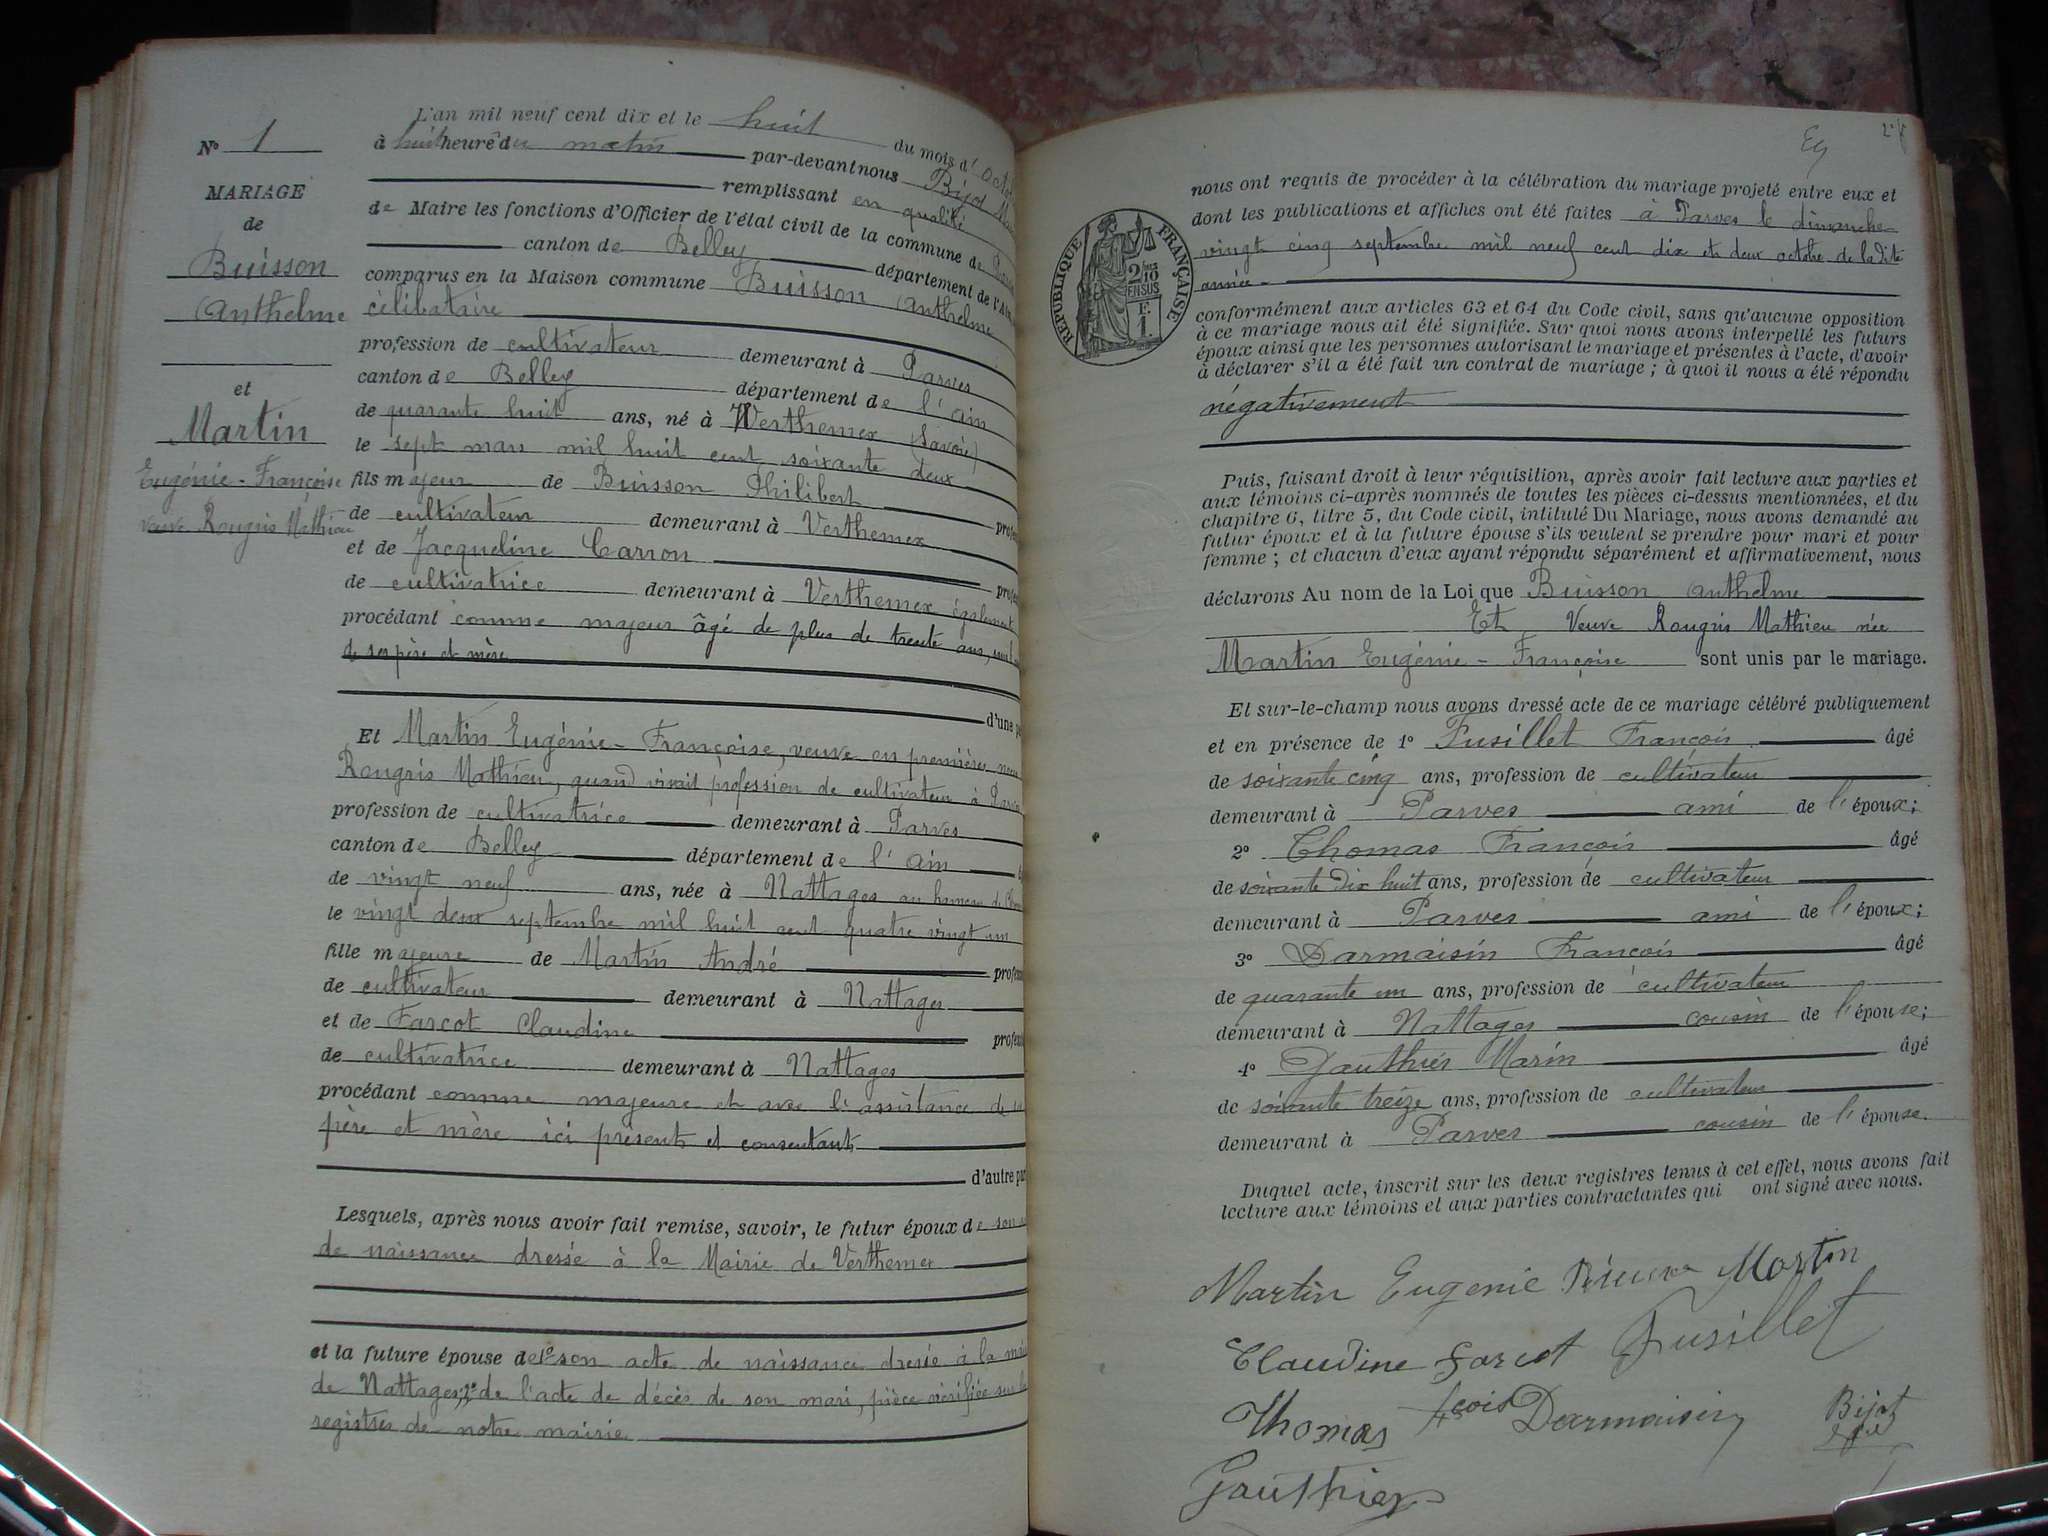 L'an mil neuf cent dix et le huit du mois d'
N° 1
à huit heure du matin par-devant nous Bijot
remplissant en qualité
MARIAGE
de
de Maire les fonctions d'Officier de l'état civil de la commune de
canton de Belley département de l'Ain
Buisson
Anthelme
comparus en la Maison commune Buisson Anthelme
célibataire
profession de cultivateur demeurant à Parves
canton de Belley département de l'ain
et
Martin
Eugénie-Françoise
veuve Rougris Mathieu
de quarante huit ans, né à Verthemex (Savoie)
le sept mars mil huit cent soixante deux
fils majeur de Buisson Philibert
de cultivateur demeurant à Verthemex
et de Jacqueline Carron
de cultivatrice demeurant à Verthemex également
procédant comme majeur âgé de plus de trente ans,
de ses père et mère
d'une
Et Martin Eugénie-Françoise, veuve en premières
Rougris Mathieu, quand vivait profession de cultivateur à
profession de cultivatrice demeurant à Parves
canton de Belley département de l'ain
de vingt neuf ans, née à Nattages au hameau de
le vingt deux septembre mil huit cent quatre vingt un
fille majeure de Martin André
de cultivateur demeurant à Nattages
et de Farcot Claudine
de cultivatrice demeurant à Nattages
procédant comme majeure et avec l'assistance de
père et mère ici présents et consentants
d'autre
Lesquels, après nous avoir fait remise, savoir, le futur époux de son
de naissance dressé à la Mairie de Verthemex
et la future épouse de 1° son acte de naissance dressé à la
de Nattages, 2° de l'acte de décès de son mari, pièce vérifiée sur
registres de notre mairie
nous ont requis de procéder à la célébration du mariage projeté entre eux et
dont les publications et affiches ont été faites à Parves le dimanche
vingt cinq septembre mil neuf cent dix et deux octobre de la dite
année
RÉPUBLIQUE FRANÇAISE
2/10
EN SUS
F.
1
conformément aux articles 63 et 64 du Code civil, sans qu'aucune opposition
à ce mariage nous ait été signifiée. Sur quoi nous avons interpellé les futurs
époux ainsi que les personnes autorisant le mariage et présentes à l'acte, d'avoir
à déclarer s'il a été fait un contrat de mariage; à quoi il nous a été répondu
négativement
Puis, faisant droit à leur réquisition, après avoir fait lecture aux parties et
aux témoins ci-après nommés de toutes les pièces ci-dessus mentionnées, et du
chapitre 6, titre 5, du Code civil, intitulé Du Mariage, nous avons demandé au
futur époux et à la future épouse s'ils veulent se prendre pour mari et pour
femme; et chacun d'eux ayant répondu séparément et affirmativement, nous
déclarons Au nom de la Loi que Buisson Anthelme
Et Veuve Rougris Mathieu née
Martin Eugénie-Françoise sont unis par le mariage.
Et sur-le-champ nous avons dressé acte de ce mariage célébré publiquement
et en présence de 1° Fusillet François âgé
de soixante cinq ans, profession de cultivateur
demeurant à Parves ami de l'époux;
2° Thomas François âgé
de soixante dix huit ans, profession de cultivateur
demeurant à Parves ami de l'époux;
3° Darmaisin François âgé
de quarante un ans, profession de cultivateur
demeurant à Nattages cousin de l'épouse;
4° Gauthier Marin âgé
de soixante treize ans, profession de cultivateur
demeurant à Parves cousin de l'épouse.
Duquel acte, inscrit sur les deux registres tenus à cet effet, nous avons fait
lecture aux témoins et aux parties contractantes qui ont signé avec nous.
Martin Eugenie Martin
Claudine Farcot Fusillet
Thomas fçois Darmaisin Bijot
Gauthier